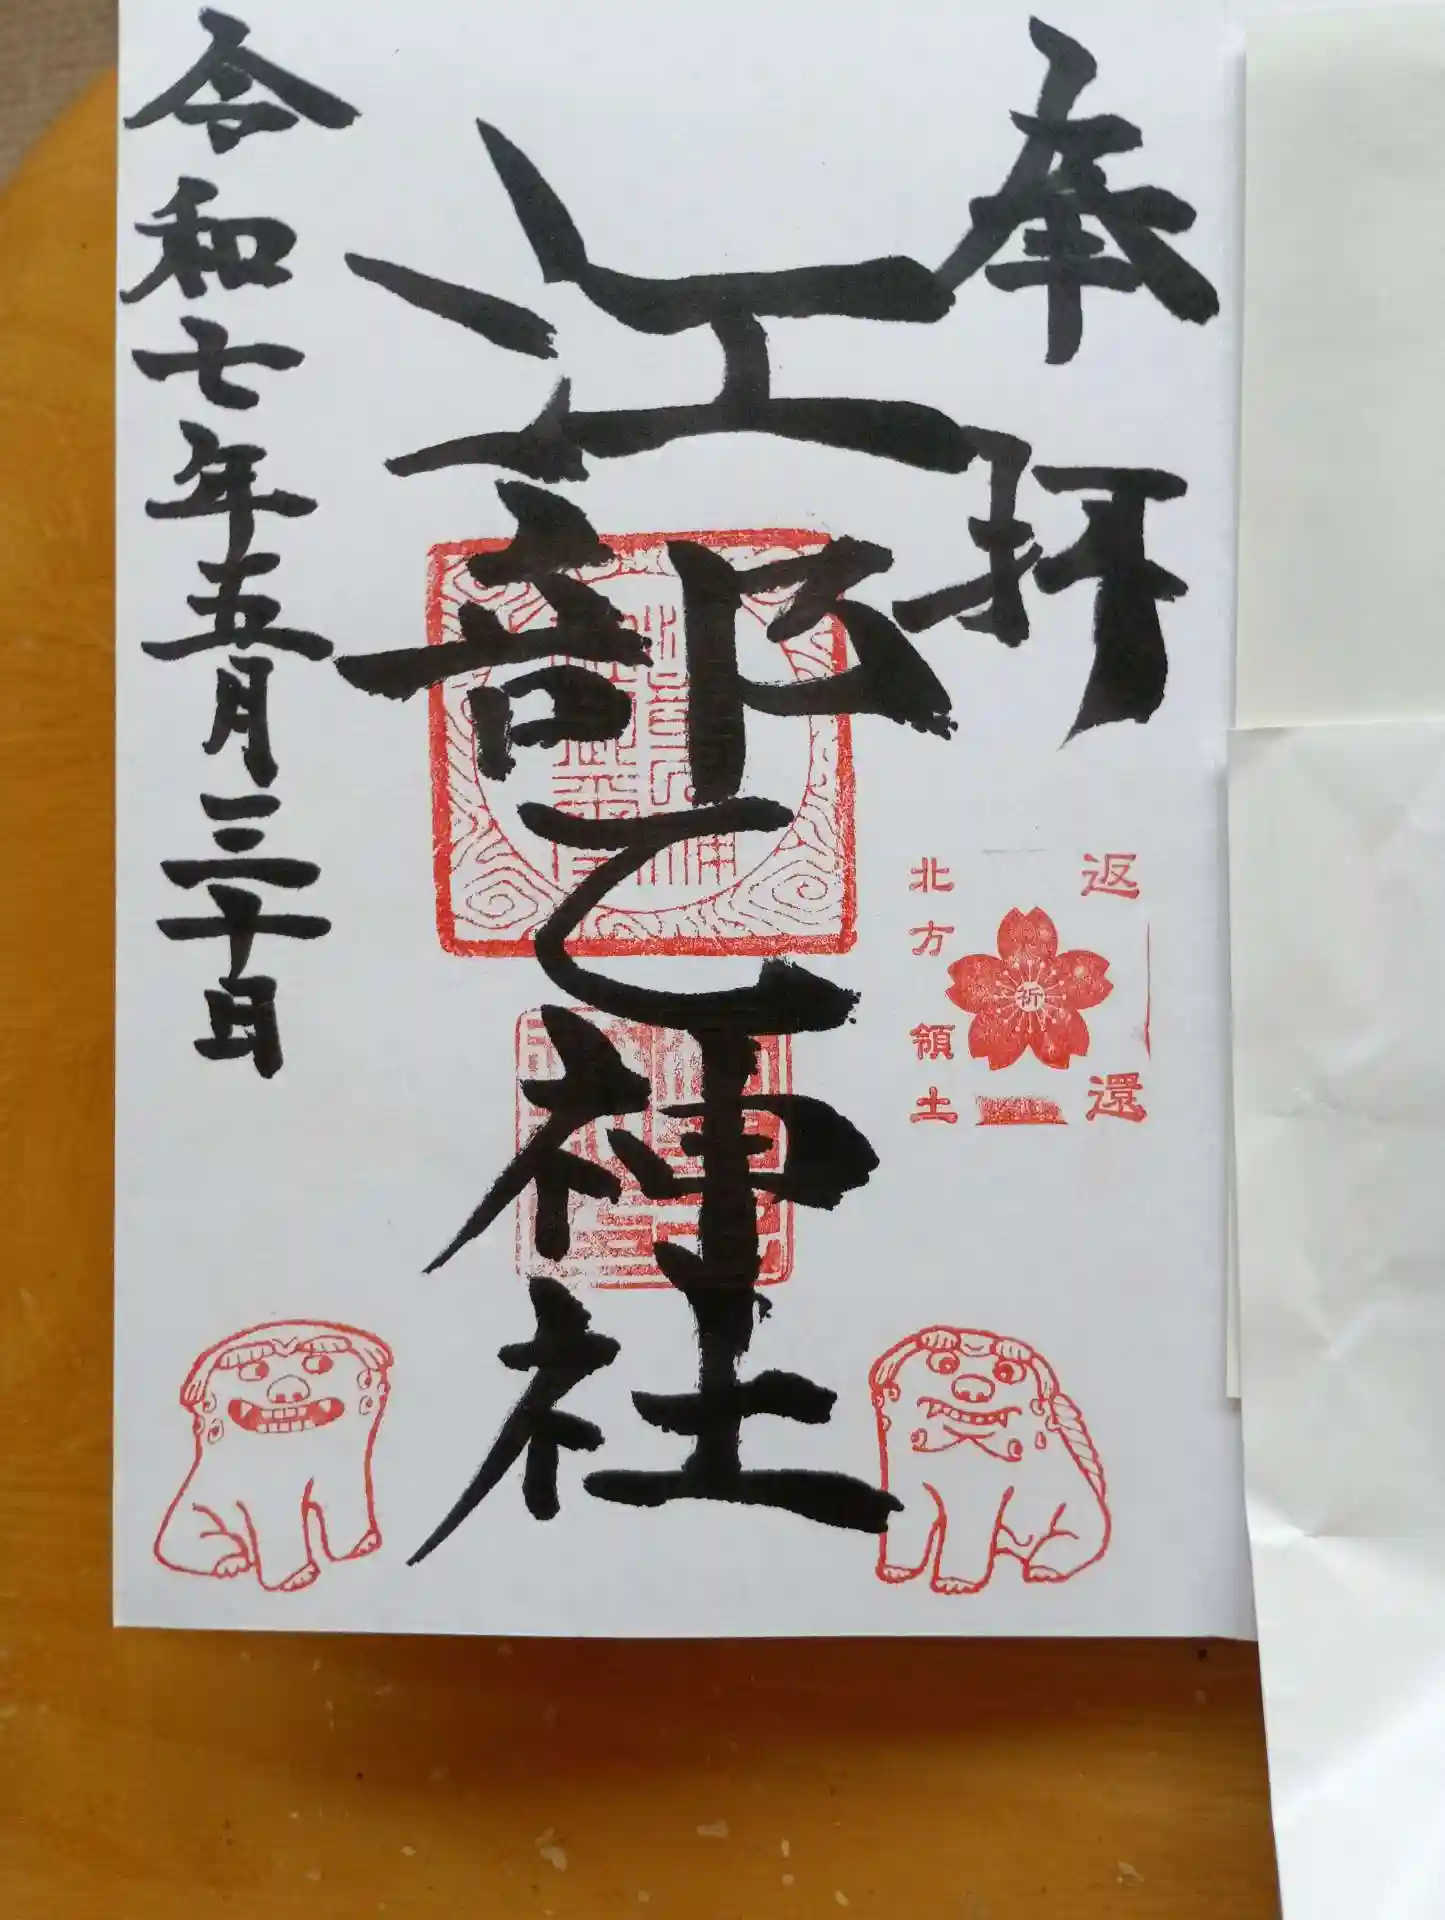 奉拝
返還
祈
北方領土
江部乙神社
令和七年五月三十日